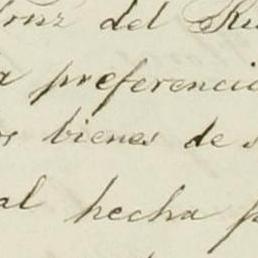 del
a preferencia
bienes de
al hecha p